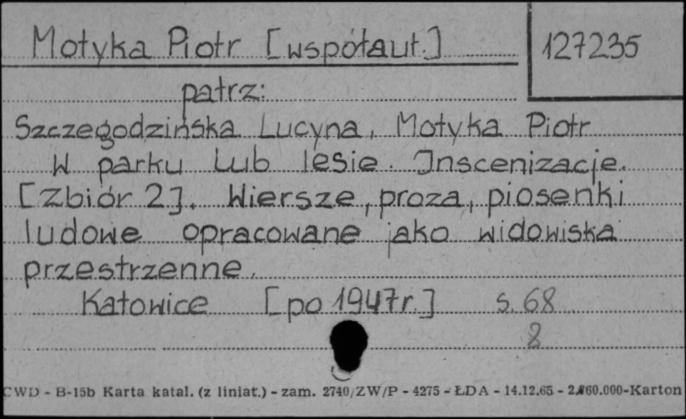 Motyka Piotr [współaut.]
127235
patrz:
Szczegodzińska Lucyna, Motyka Piotr
W parku lub lesie. Inscenizacje.
[Zbiór 2]. Wiersze, proza, piosenki
ludowe opracowane jako widowiska
przestrzenne.
Katowice [po 1947r.] s. 68
8
CWD - B-15b Karta katal. (z liniat.) - zam. 2740/ZW/P - 4275 - ŁDA - 14.12.65 - 2.860.000-Karton